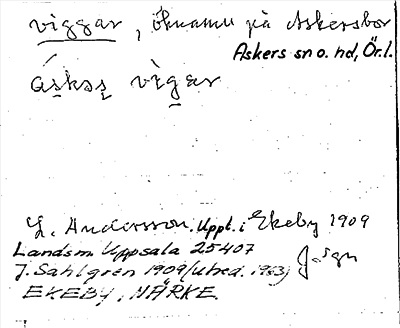 viggar, öknamn på Askersbor
Askers sn o. hd, Ör.l.
áskəş vìgar
L. Andersson. Uppt. i Ekeby 1909
Landsm. Uppsala 25407
J. Sahlgren 1909 (utred. 1953)
EKEBY, NÄRKE.